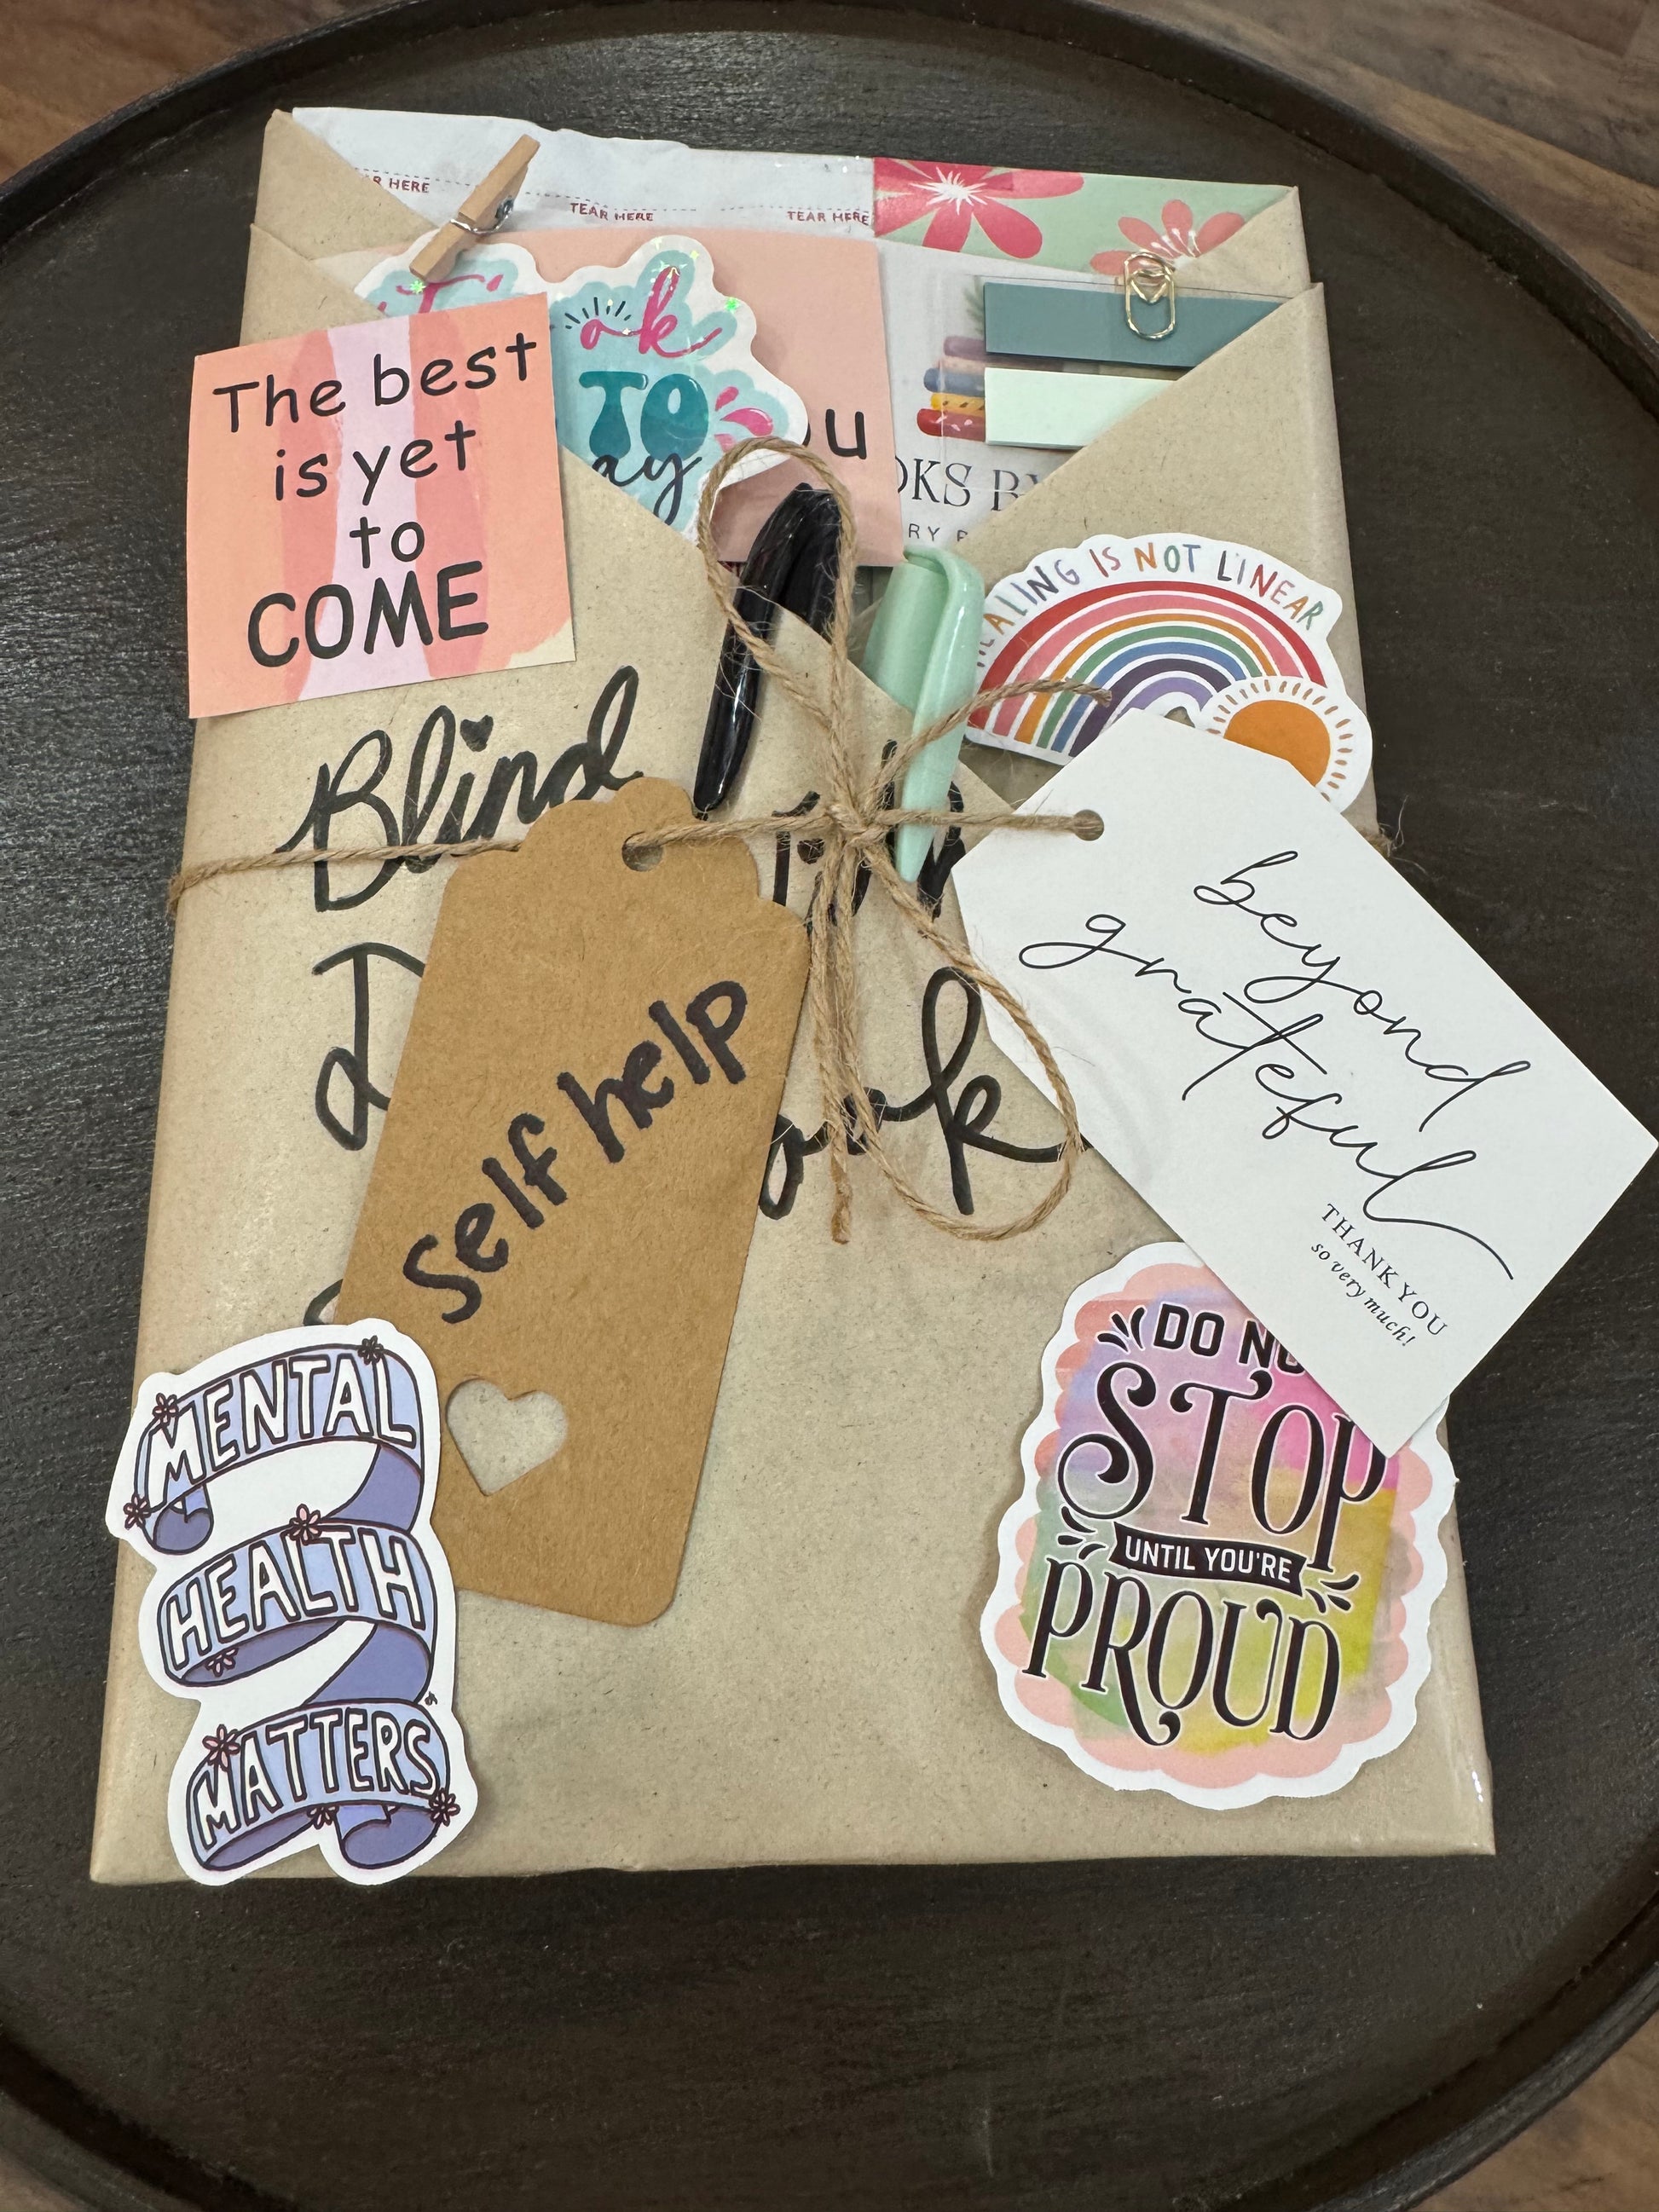 TEAR HERE
TEAR HERE
The best
is yet
to
COME
TO
HEALING IS NOT LINEAR
Blind
Self help
beyond
grateful
THANK YOU
so very much!
MENTAL
HEALTH
MATTERS
DO
STOP
UNTIL YOU'RE
PROUD